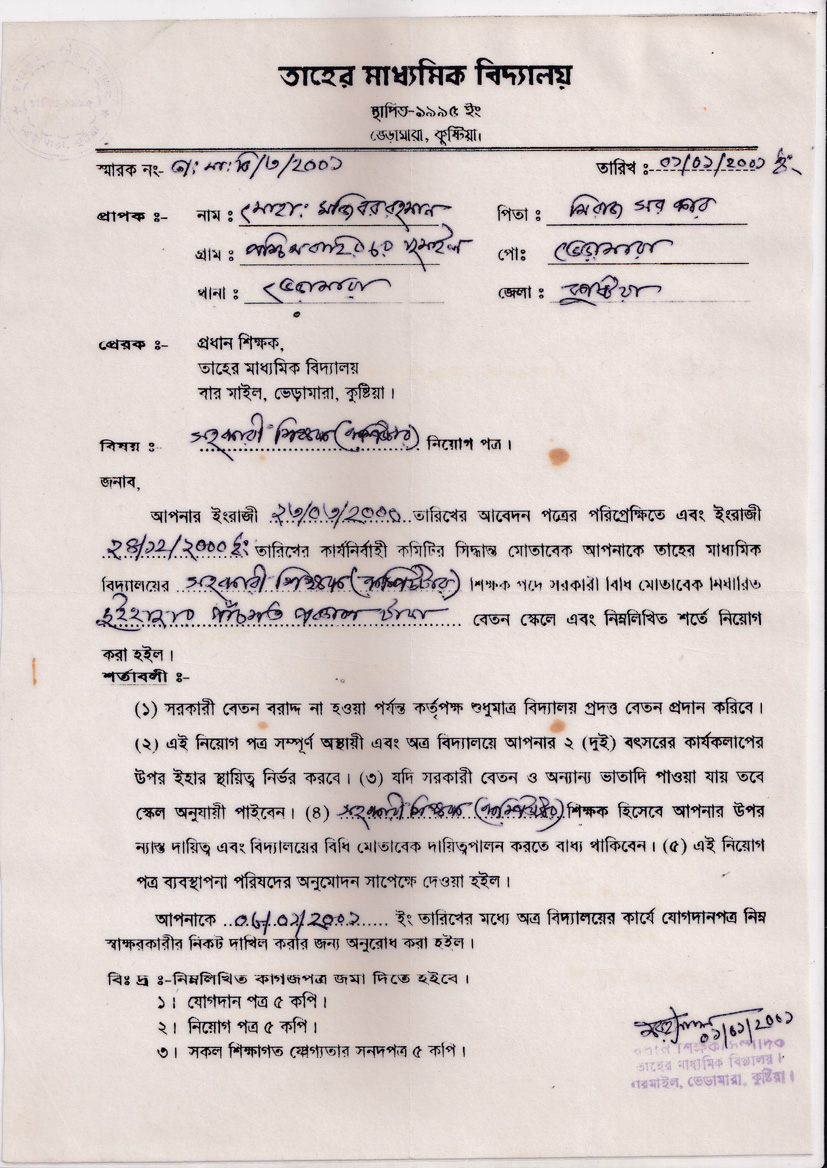 তাহের মাধ্যমিক বিদ্যালয়
স্থাপিত-১৯৯৫ ইং
ভেড়ামারা, কুষ্টিয়া।
স্মারক নং- তা: মা: বি/৩/২০০১ তারিখ : ০১/০১/২০০১ ইং
প্রাপক ঃ- নাম : মোহা: মজিবর রহমান পিতা : মিরাজ সরকার
গ্রাম : পশ্চিম বাহিরচর পো: ভেড়ামারা
থানা : ভেড়ামারা জেলা : কুষ্টিয়া
প্রেরক ঃ- প্রধান শিক্ষক,
তাহের মাধ্যমিক বিদ্যালয়
বার মাইল, ভেড়ামারা, কুষ্টিয়া।
বিষয় ঃ সহকারী শিক্ষক (কম্পিউটার) নিয়োগ পত্র।
জনাব,
আপনার ইংরাজী ২৩/০৩/২০০০ তারিখের আবেদন পত্রের পরিপ্রেক্ষিতে এবং ইংরাজী
২৪/১২/২০০০ ইং তারিখের কার্যনির্বাহী কমিটির সিদ্ধান্ত মোতাবেক আপনাকে তাহের মাধ্যমিক
বিদ্যালয়ের সহকারী শিক্ষক (কম্পিউটার) শিক্ষক পদে সরকারী বিধি মোতাবেক নির্ধারিত
দুইহাজার পাঁচশত পঞ্চাশ টাকা বেতন স্কেলে এবং নিম্নলিখিত শর্তে নিয়োগ
করা হইল।
শর্তাবলী ঃ-
(১) সরকারী বেতন বরাদ্দ না হওয়া পর্যন্ত কর্তৃপক্ষ শুধুমাত্র বিদ্যালয় প্রদত্ত বেতন প্রদান করিবে।
(২) এই নিয়োগ পত্র সম্পূর্ণ অস্থায়ী এবং অত্র বিদ্যালয়ে আপনার ২ (দুই) বৎসরের কার্যকলাপের
উপর ইহার স্থায়িত্ব নির্ভর করবে। (৩) যদি সরকারী বেতন ও অন্যান্য ভাতাদি পাওয়া যায় তবে
স্কেল অনুযায়ী পাইবেন। (৪) সহকারী শিক্ষক (কম্পিউটার) শিক্ষক হিসেবে আপনার উপর
ন্যাস্ত দায়িত্ব এবং বিদ্যালয়ের বিধি মোতাবেক দায়িত্বপালন করতে বাধ্য থাকিবেন। (৫) এই নিয়োগ
পত্র ব্যবস্থাপনা পরিষদের অনুমোদন সাপেক্ষে দেওয়া হইল।
আপনাকে ইং তারিখের মধ্যে অত্র বিদ্যালয়ের কার্যে যোগদানপত্র নিম্ন
স্বাক্ষরকারীর নিকট দাখিল করার জন্য অনুরোধ করা হইল।
বিঃ দ্রঃ -নিম্নলিখিত কাগজপত্র জমা দিতে হইবে।
১। যোগদান পত্র ৫ কপি।
২। নিয়োগ পত্র ৫ কপি।
৩। সকল শিক্ষাগত যোগ্যতার সনদপত্র ৫ কপি।
০১/০১/২০০১
তাহের মাধ্যমিক বিদ্যালয়।
বারমাইল, ভেড়ামারা, কুষ্টিয়া।